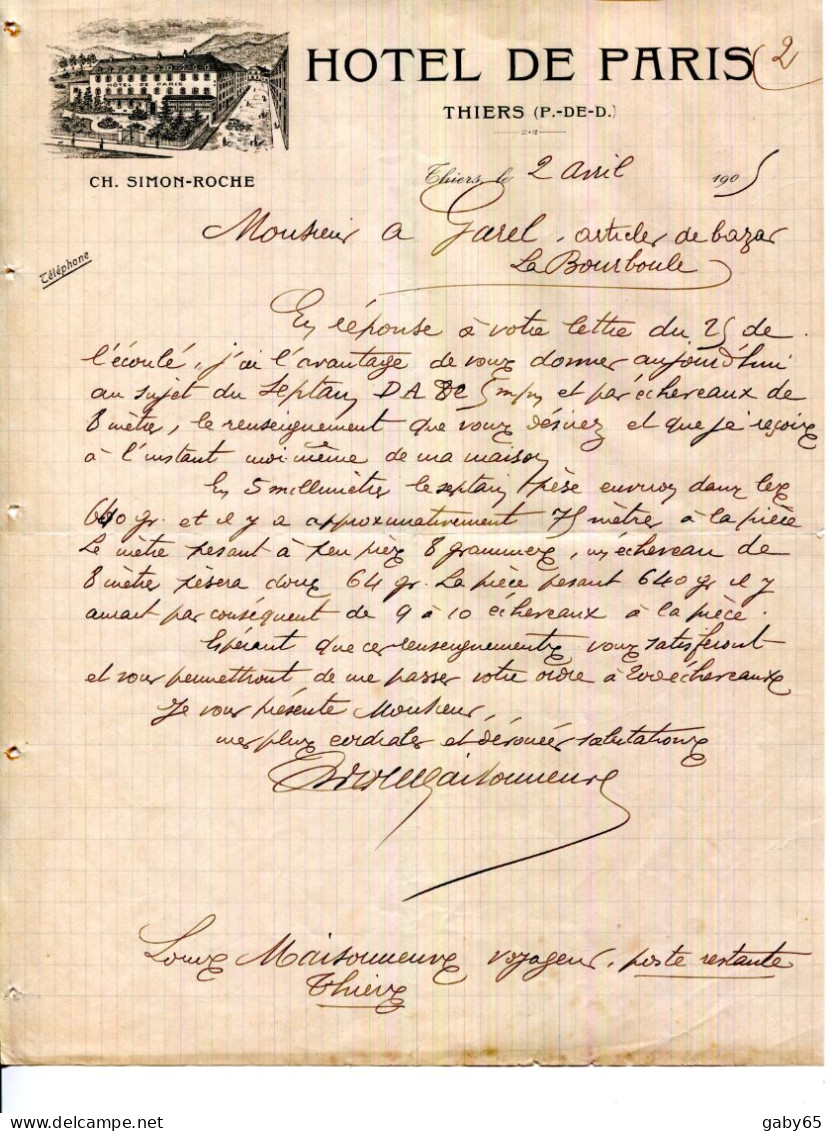 HOTEL DE PARIS
HOTEL DE PARIS 2
THIERS (P.-DE-D.)
CH. SIMON-ROCHE
Thiers, le 2 avril 1905
Monsieur a Garel, articles de bazar
La Bourboule
Téléphone
En réponse à votre lettre du 25 de
l'écoulé, j'ai l'avantage de vous donner aujourd'hui
au sujet du septain D A et par écheveaux de
8 mètres, le renseignement que vous désirez et que je reçois
à l'instant moi-même de ma maison
En 5 millimètres le septain pèse environ dans les
640 gr. et il y a approximativement 75 mètres à la pièce
Le mètre pesant à peu près 8 grammes, un écheveau de
8 mètres pèsera donc 64 gr. La pièce pesant 640 gr il y
aurait par conséquent de 9 à 10 écheveaux à la pièce.
Espérant que ces renseignements vous satisferont
et vous permettront de me passer votre ordre à 200 écheveaux
Je vous présente Monsieur,
mes plus cordiales et dévouées salutations
Maisonneuve
Louis Maisonneuve voyageur, poste restante
Thiers
gaby65